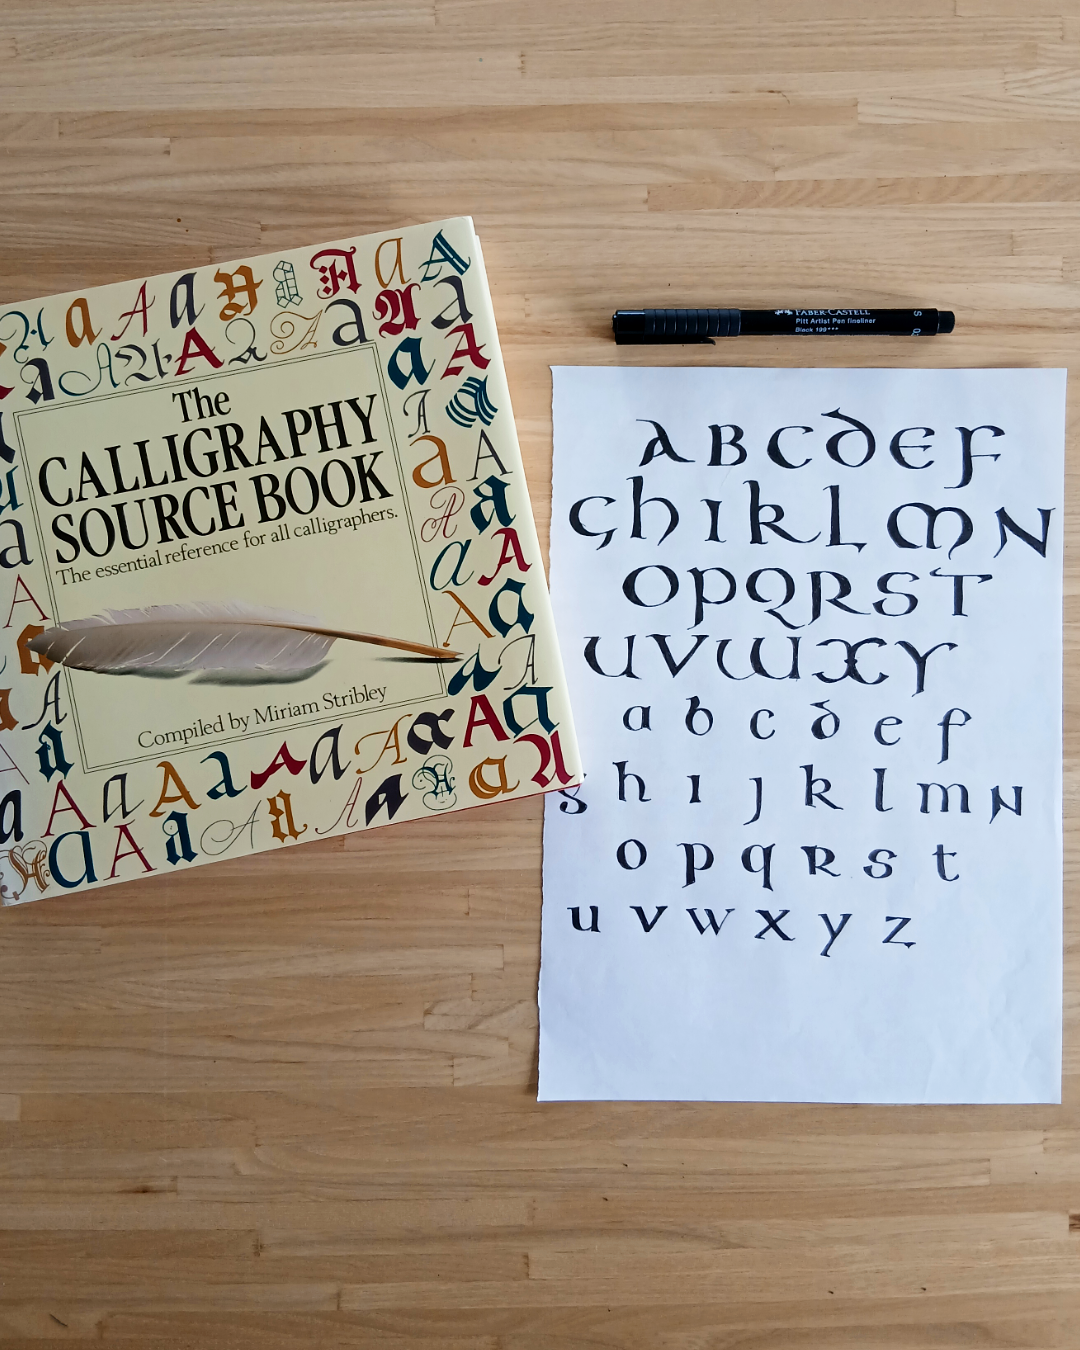 The
CALLIGRAPHY
SOURCE BOOK
The essential reference for all calligraphers.
Compiled by Miriam Stribley
FABER-CASTELL
Pitt Artist Pen fineliner
Black 199***
S
A B C D E F
G H I K L M N
O P Q R S T
U V W X Y
a b c d e f
g h i j k l m n
o p q r s t
u v w x y z